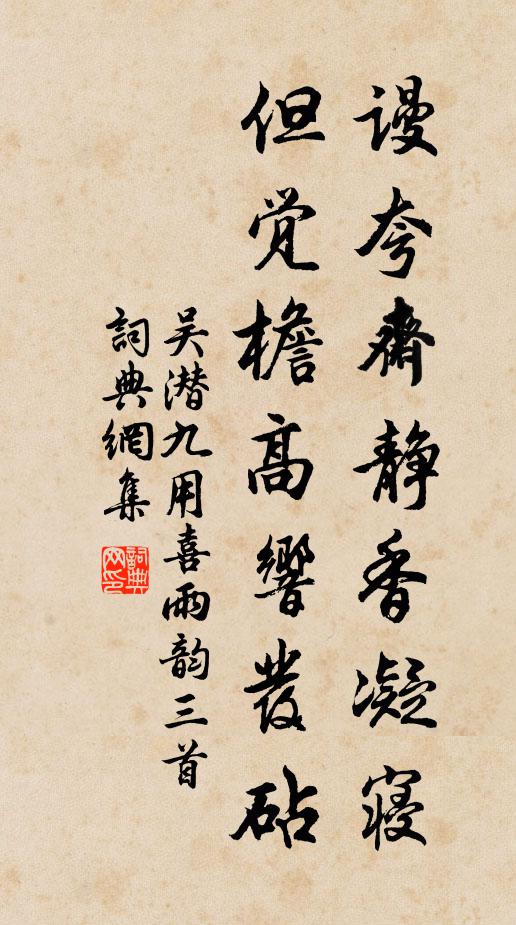 谩夸斋静香凝寝
但觉檐高響發砧
吴潜九用喜雨韵三首
詞典網集
詞典网印